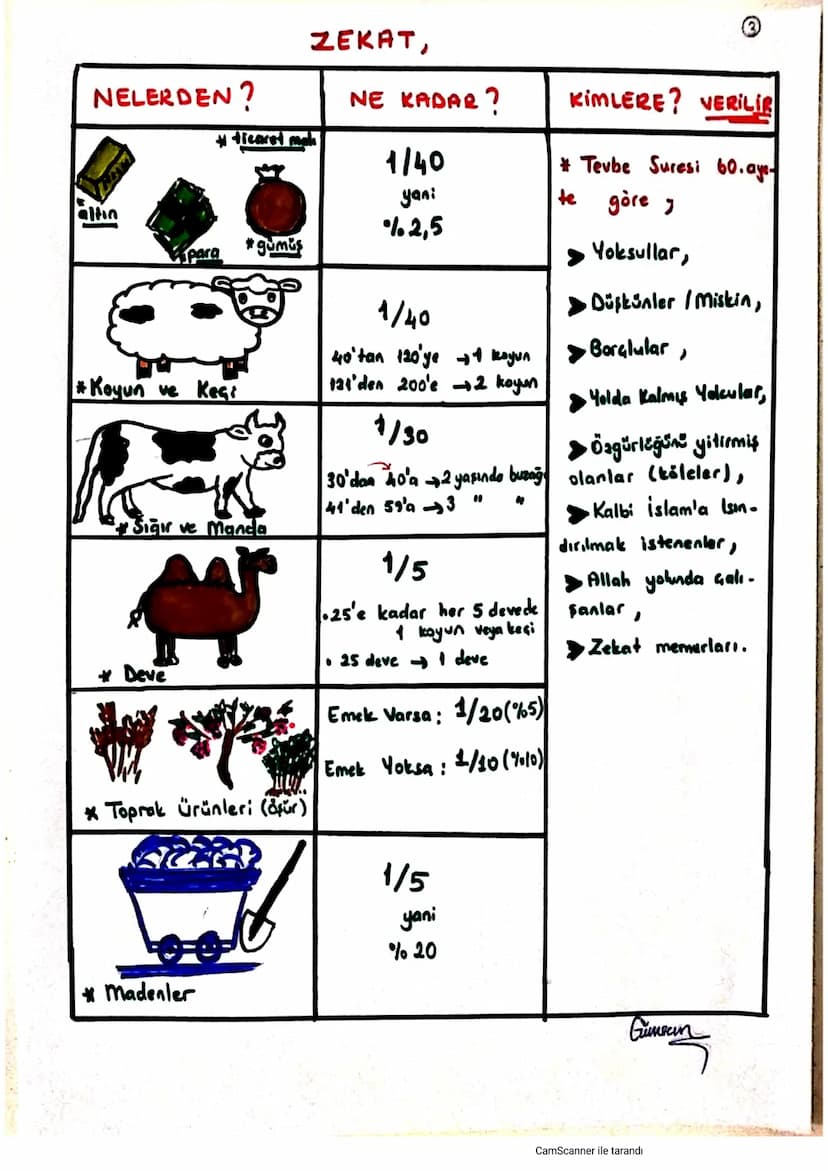 3
ZEKAT,
NELERDEN?
NE KADAR?
KİMLERE? VERİLİR
* ticaret malı
* altın
* para
* gümüş
1/40
yani
% 2,5
* Koyun ve Keçi
1/40
40'tan 120'ye → 1 koyun
121'den 200'e → 2 koyun
* Sığır ve Manda
1/30
30'dan 40'a → 2 yaşında buzağı
41'den 59'a → 3 " "
* Deve
1/5
. 25'e kadar her 5 devede
1 koyun veya keçi
. 25 deve → 1 deve
* Toprak Ürünleri (öşür)
Emek Varsa: 1/20 (%5)
Emek Yoksa: 1/10 (%10)
* Madenler
1/5
yani
% 20
* Tevbe Suresi 60. aye-
te göre ;
➤ Yoksullar,
➤ Düşkünler / Miskin,
➤ Borçlular ,
➤ Yolda Kalmış Yolcular,
➤ Özgürlüğünü yitirmiş
olanlar (köleler) ,
➤ Kalbi İslam'a Isın-
dırılmak istenenler ,
➤ Allah yolunda çalı-
şanlar ,
➤ Zekat memurları.
CamScanner ile tarandı